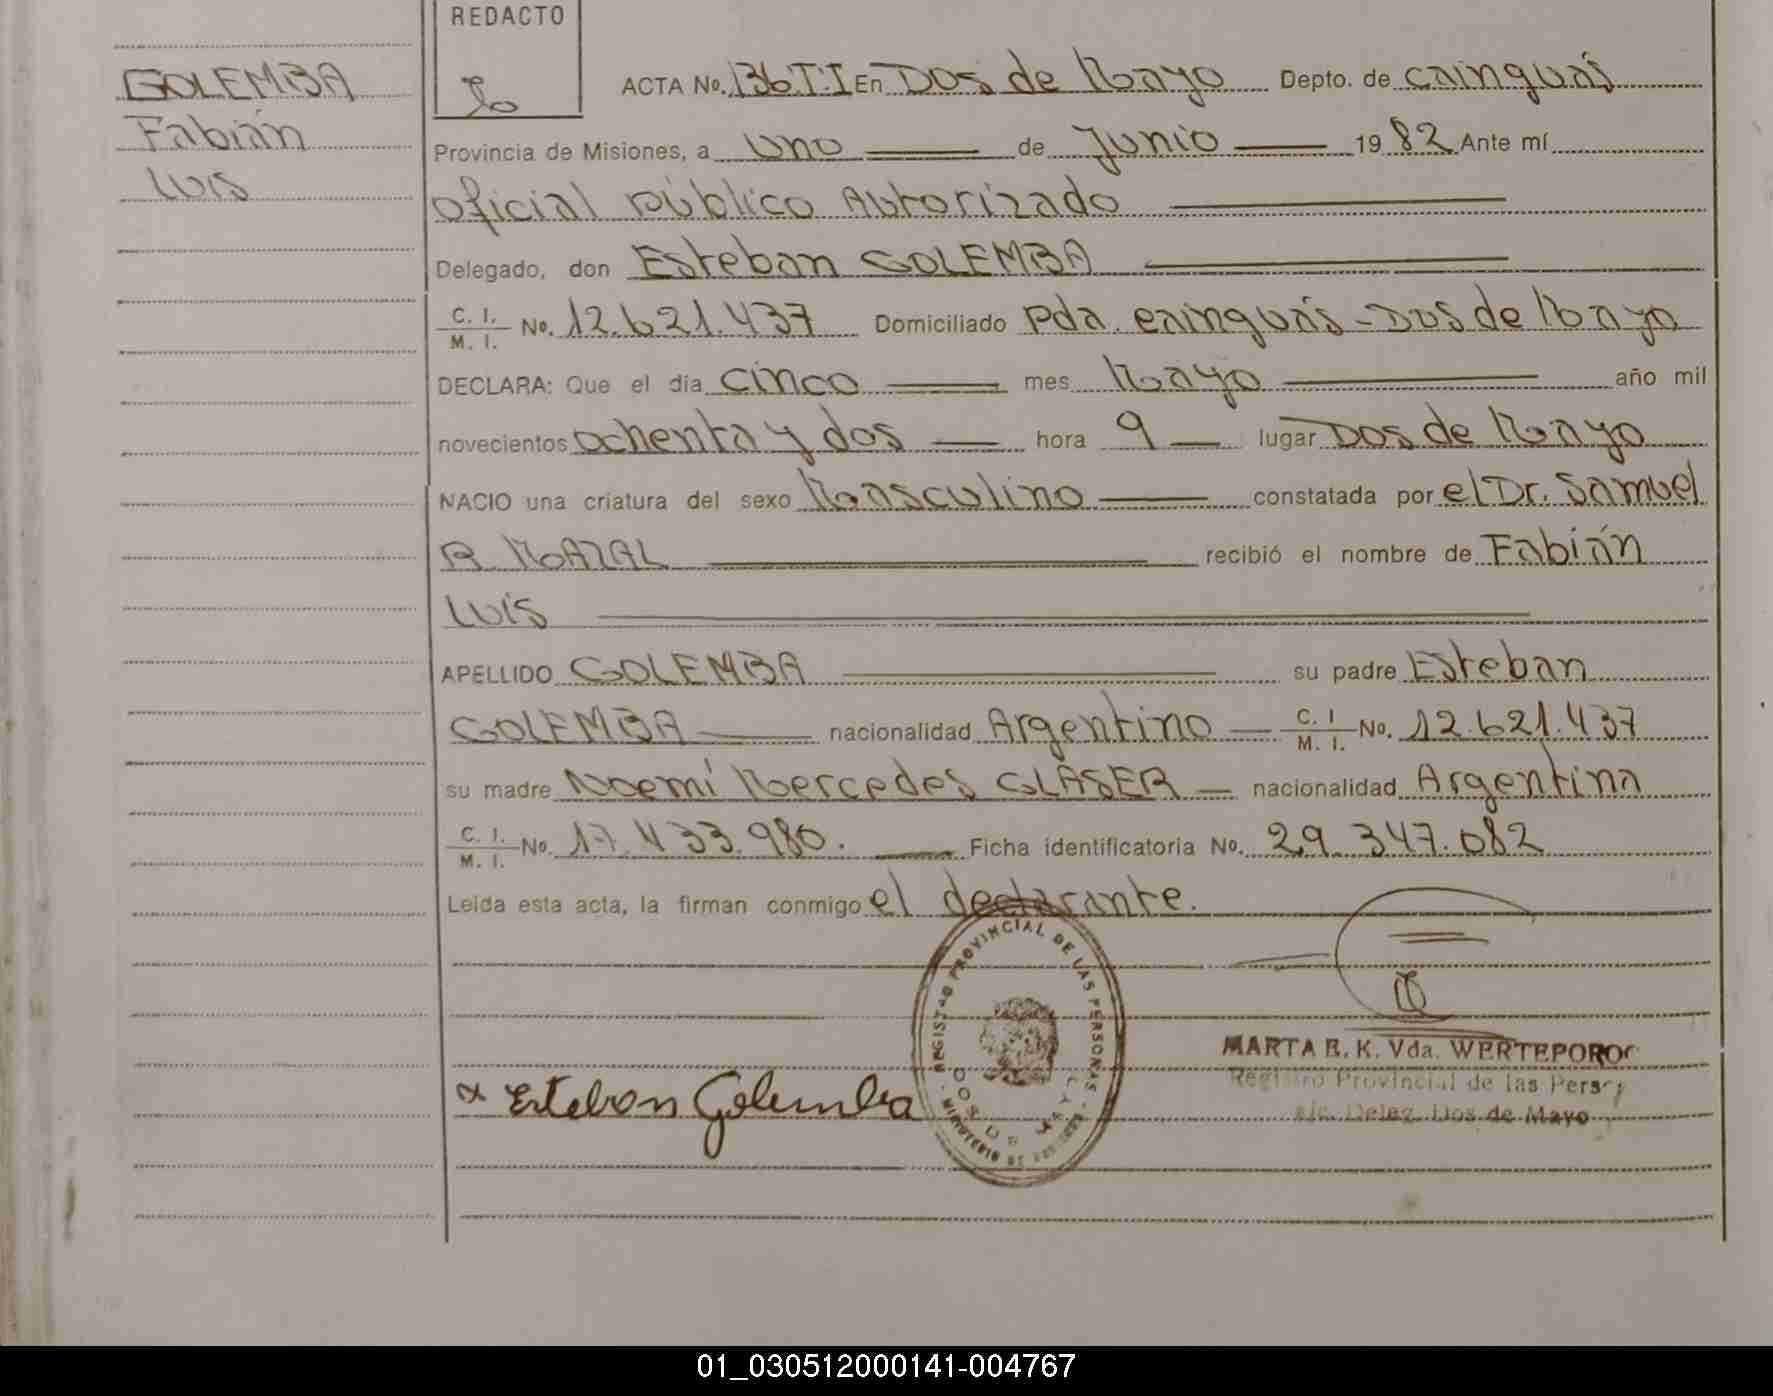 REDACTO
GOLEMBA
Fabián
Luis
ACTA No. 136 T:I En Dos de Mayo Depto. de Cainguás
Provincia de Misiones, a uno de Junio 19 82 Ante mí
Oficial Público Autorizado
Delegado, don Esteban GOLEMBA
C. I. M. I. No. 12.621.437 Domiciliado Pda. Cainguás - Dos de Mayo
DECLARA: Que el día cinco mes Mayo año mil
novecientos ochenta y dos hora 9 lugar Dos de Mayo
NACIO una criatura del sexo Masculino constatada por el Dr. Samuel
R. MAZAL recibió el nombre de Fabián
Luis
APELLIDO GOLEMBA su padre Esteban
GOLEMBA nacionalidad Argentino C. I M. I. No. 12.621.437
su madre Noemí Mercedes GLASER nacionalidad Argentina
C. I. M. I. No. 17.433.980. Ficha identificatoria No. 29.347.082
Leída esta acta, la firman conmigo el declarante.
REGISTRO PROVINCIAL DE LAS PERSONAS
DOS DE MAYO
MARTA E. K. Vda. WERTEPOROC
Registro Provincial de las Pers
a/c. Deleg. Dos de Mayo
x Esteban Golemba
01_030512000141-004767